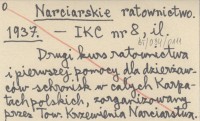 0
Narciarskie ratownictwo.
1937. – IKC nr 8, il.
Drugi kurs ratownictwa
i pierwszej pomocy dla dzierżaw-
ców schronisk w całych Karpa-
tach polskich, zorganizowany
przez Tow. Krzewienia Narciarstwa.